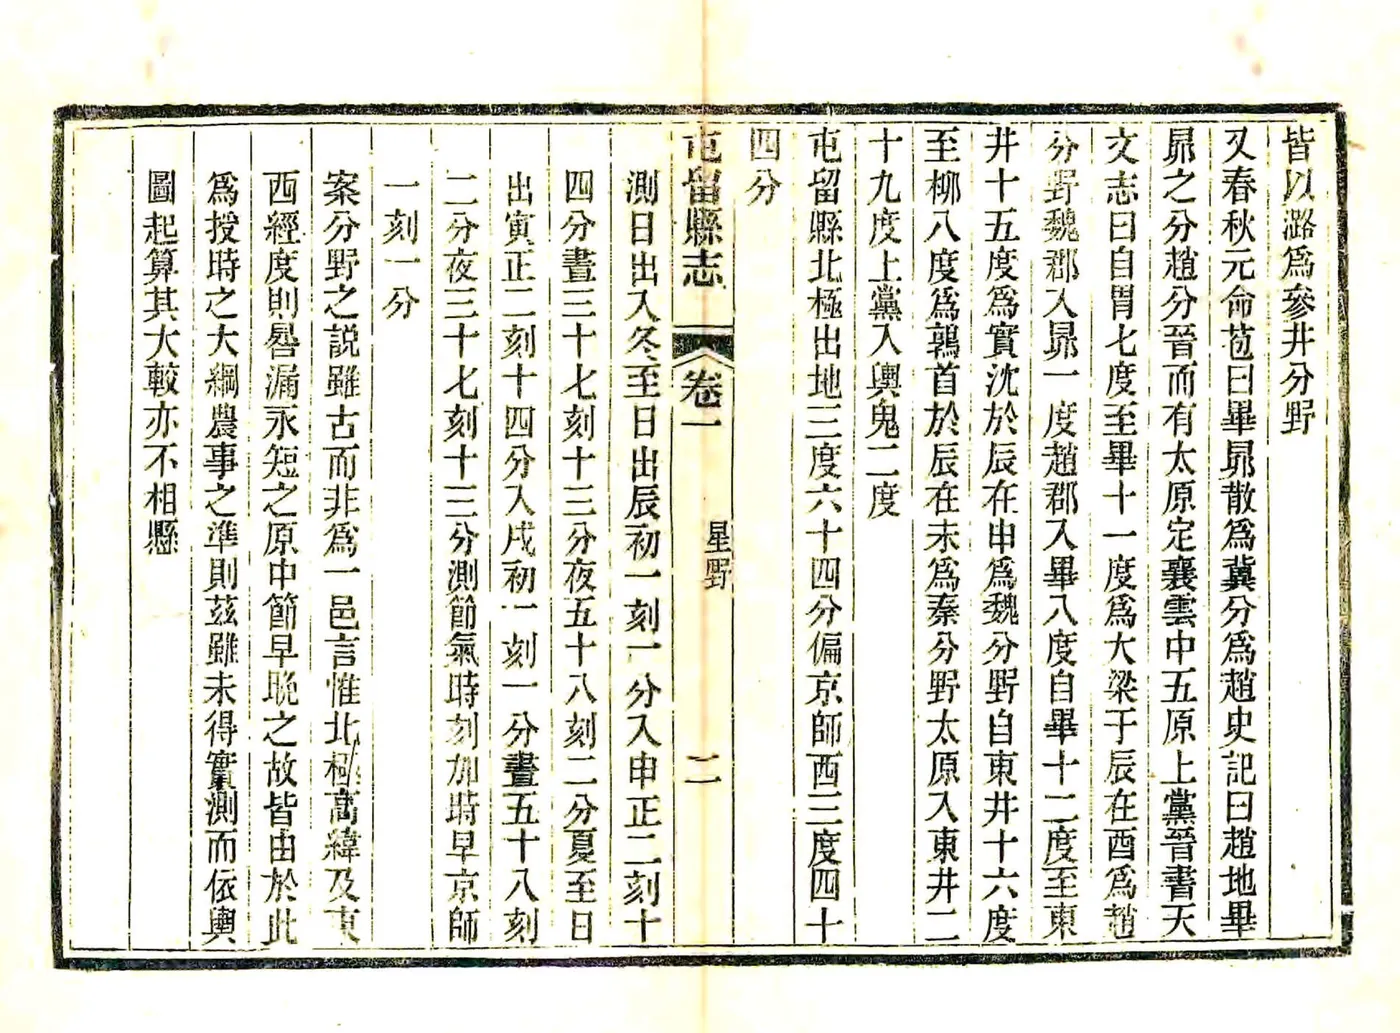 皆以潞爲參井分野
又春秋元命苞曰畢昴散爲冀分爲趙史記曰趙地畢
昴之分趙分晉而有太原定襄雲中五原上黨晉書天
文志曰自胃七度至畢十一度爲大梁于辰在酉爲趙
分野魏郡入昴一度趙郡入畢八度自畢十二度至東
井十五度爲實沈於辰在申爲魏分野自東井十六度
至柳八度爲鶉首於辰在未爲秦分野太原入東井二
十九度上黨入輿鬼二度
屯留縣北極出地三度六十四分偏京師西三度四十
四分
屯留縣志
卷一
星野
二
測日出入冬至日出辰初一刻一分入申正二刻十
四分晝三十七刻十三分夜五十八刻二分夏至日
出寅正二刻十四分入戌初一刻一分晝五十八刻
二分夜三十七刻十三分測節氣時刻加時早京師
一刻一分
案分野之説雖古而非爲一邑言惟北極高緯及東
西經度則晷漏永短之原中節早晚之故皆由於此
爲授時之大綱農事之準則茲雖未得實測而依輿
圖起算其大較亦不相懸